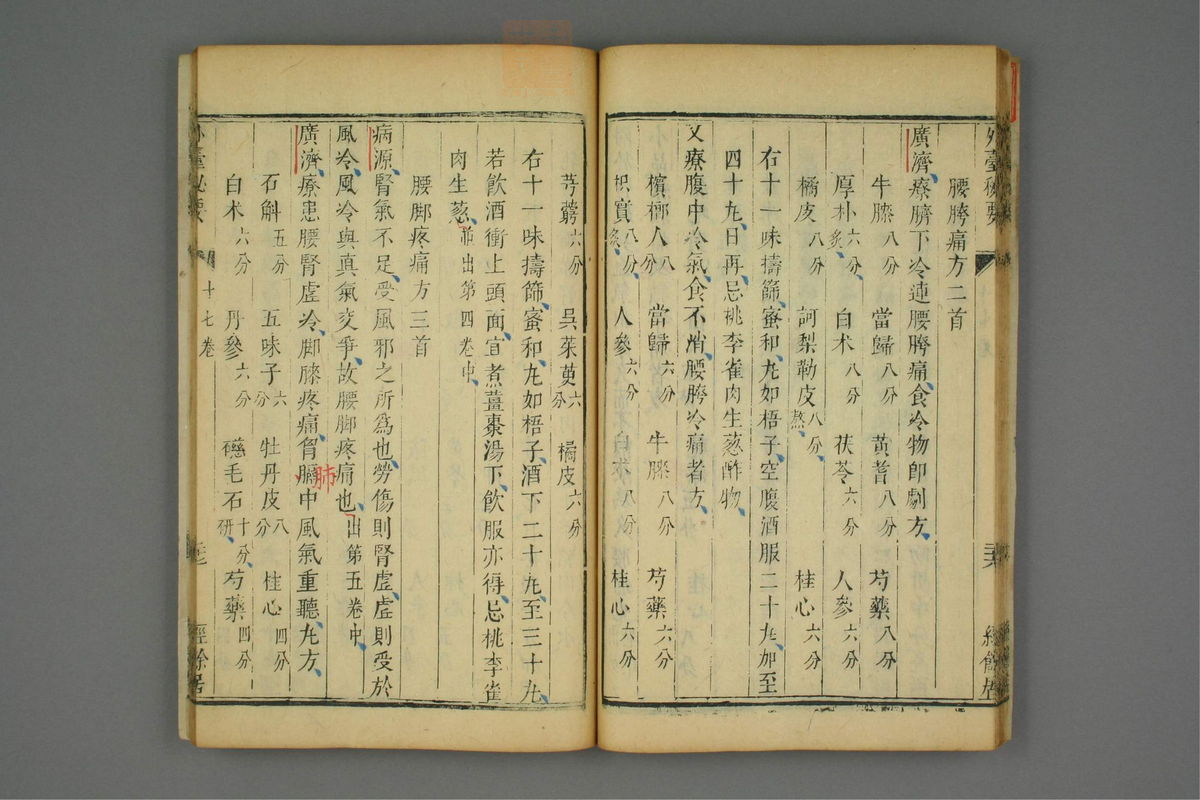 腰胯痛方二首
廣濟療臍下冷連腰胯痛食冷物即劇方
牛膝八分 當歸八分 黃耆八分 芍藥八分
厚朴六分炙 白朮八分 茯苓六分 人參六分
橘皮八分 訶梨勒皮八分熬 桂心六分
右十一味擣篩蜜和丸如梧子空腹酒服二十丸加至
四十丸日再忌桃李雀肉生葱酢物
又療腹中冷氣食不消腰胯冷痛者方
檳榔人八分 當歸六分 牛膝八分 芍藥六分
枳實八分炙 人參六分 白朮八分 桂心六分
芎藭六分 吳茱萸六分 橘皮六分
右十一味擣篩蜜和丸如梧子酒下二十丸至三十丸
若飲酒衝上頭面宜煮薑棗湯下飲服亦得忌桃李雀
肉生葱並出第四卷中
腰脚疼痛方三首
病源腎氣不足受風邪之所爲也勞傷則腎虛虛則受於
風冷風冷與真氣交爭故腰脚疼痛也出第五卷中
廣濟療患腰腎虛冷脚膝疼痛胷膈中風氣重聽丸方
肺
石斛五分 五味子六分 牡丹皮八分 桂心四分
白朮六分 丹參六分 磁毛石十分研 芍藥四分
外臺秘要
十七卷
經餘居